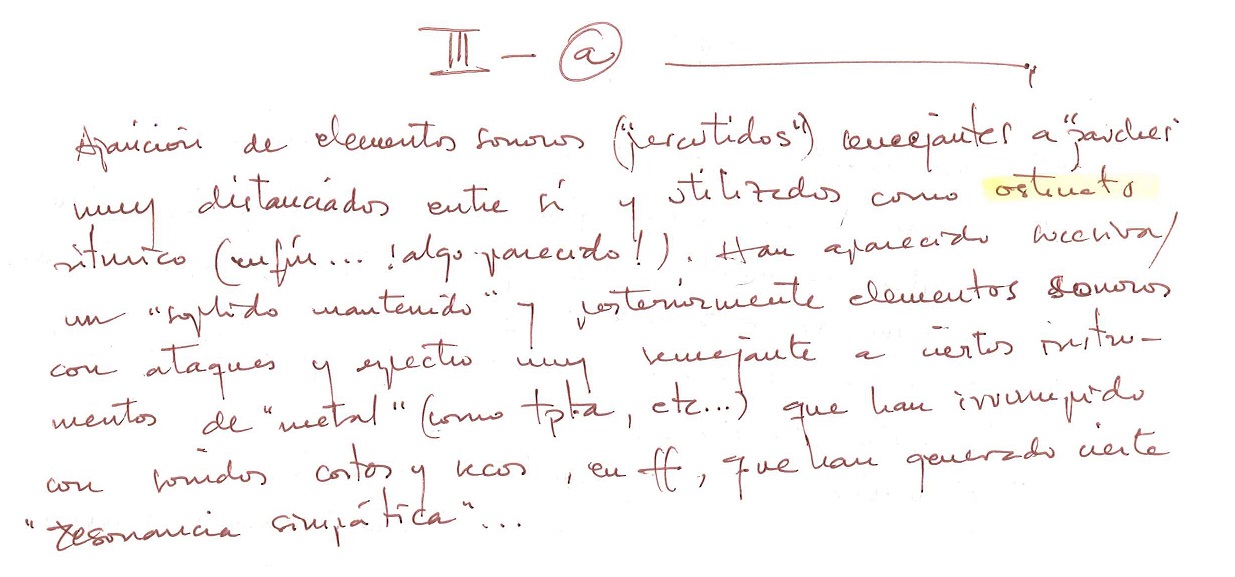 III - a
Aparición de elementos sonoros ("percutidos") semejantes a "parches"
muy distanciados entre sí y utilizados como ostinato
rítmico (en fin... !algo parecido!). Han aparecido sucesiva/
un "soplido mantenido" y posteriormente elementos sonoros
con ataques y espectro muy semejante a ciertos instru-
mentos de "metal" (como tpta, etc...) que han irrumpido
con sonidos cortos y secos, en ff, que han generado cierta
"resonancia simpática"...